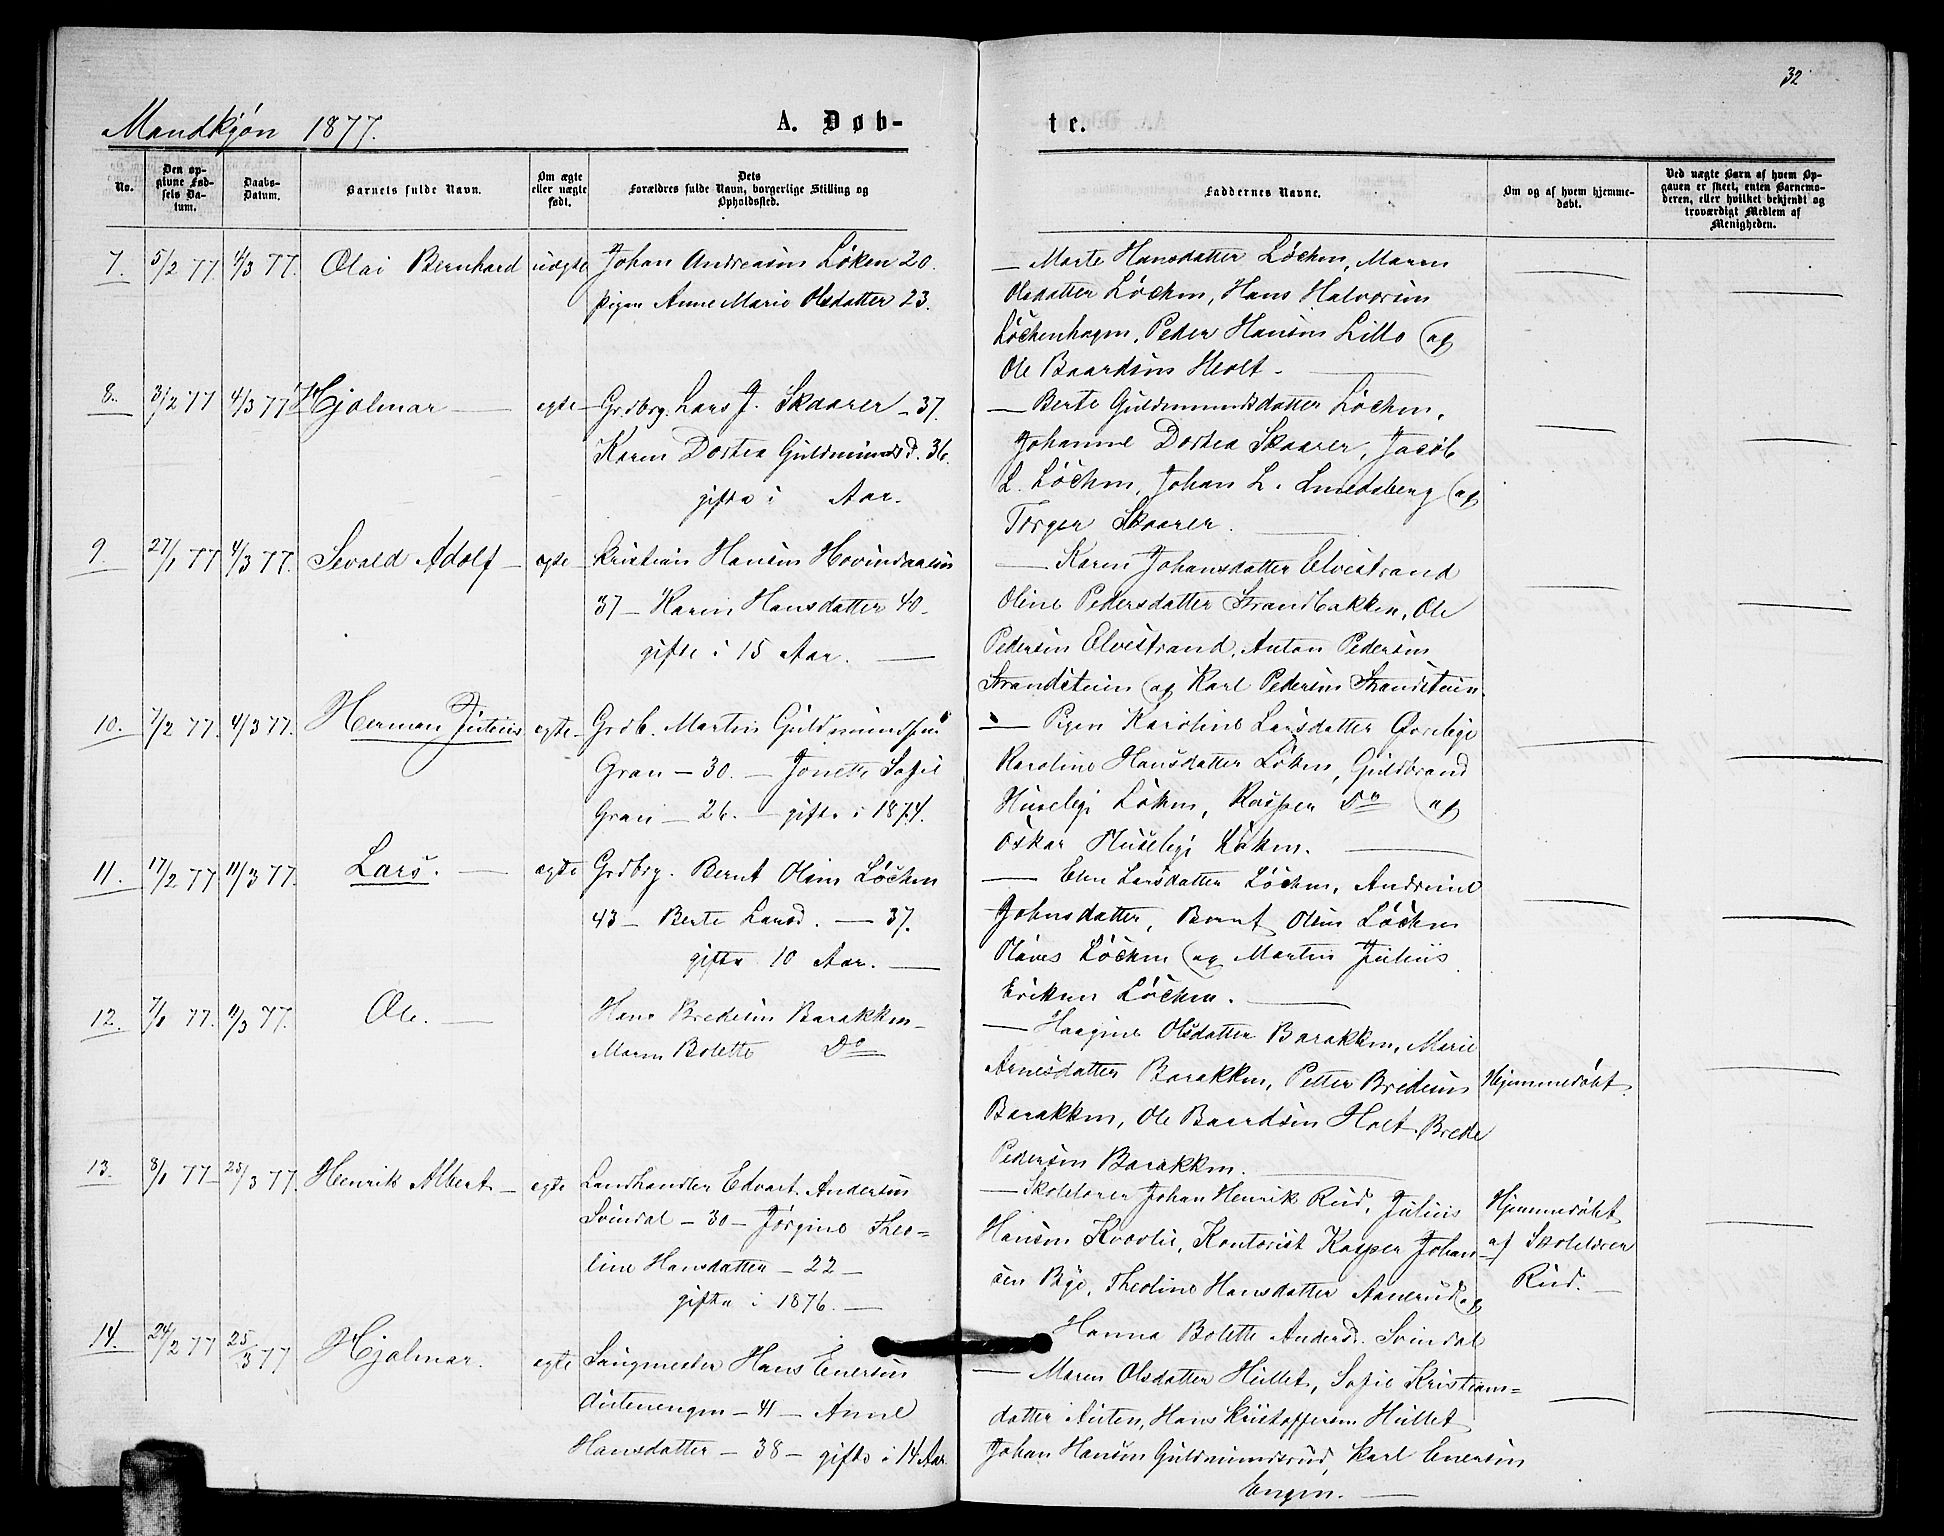 32
Mandkjøn 1877.
A. Døb-
te.
No.
Den opgivne Fødsels Datum.
Daabs-Datum.
Barnets fulde Navn.
Om ægte eller uægte født.
Dets Forældres fulde Navn, borgerlige Stilling og Opholdssted.
Faddernes Navne.
Om og af hvem hjemmedøbt.
Ved uægte Barn af hvem Opgaven er skeet, enten Barnemoderen, eller hvilket bekjendt og troværdigt Medlem af Menigheden.
7. 5/2 77 4/3 77. Olai Bernhard uægte Johan Andreasen Løken 20.
pigen Anne Marie Olsdatter 23.
— Marte Hansdatter Løchen, Maren
Olsdatter Løchen, Hans Halvorsen
Løchenhagen, Peder Hansen Lillo og
Ole Baardsen Holt.
8. 3/2 77 4/3 77 Hjalmar — egte — Grdbrg. Lars J. Skaarer — 37.
Karen Dortea Guldmundsd. 36.
gifte i Aar.
— Berte Guldmundsdatter Løchen,
Johanne Dortea Skaarer, Jacob
L. Løchen, Johan L. Lundsberg og
Torger Skaarer.
9. 27/1 77 4/3 77. Sevald Adolf — egte — Kristian Hansen
37 — Karen Hansdatter 40.
gifte i 15 Aar. —
— Karen Johansdatter Elvestrand
Oline Pedersdatter Strandbakken, Ole
Pedersen Elvestrand, Anton Pedersen
Strandsteien og Karl Pedersen Strandsteien.
10. 7/2 77. 4/3 77. Herman Julius egte — Grdb. Martin Guldmundsen
Gran — 30. — Jonette Sofie
Gran — 26. — gifte i 1874.
— Pigen Karoline Larsdatter
Karoline Hansdatter Løken, Guldbrand
Huseleje Løken, Kasper Do og
Oskar Huseleje Løken.
11. 17/2 77 11/3 77. Lars. — egte Grdbrg. Bernt Olsen Løchen
43 — Berte Larsd. — 37.
gifte 10 Aar. —
— Elen Larsdatter Løchen, Andrine
Johnsdatter, Bernt Olsen Løchen
Løchen og Martin Julius
Eriksen Løchen. —
12. 7/1 77. 11/3 77. Ole. — Hans Bredesen Barakken —
Maren Bolette Do
— Haagine Olsdatter Barakken, Marie
Arnesdatter Barakken, Petter Bredesen
Barakken, Ole Baardsen Holt, Brede
Pedersen Barakken.
Hjemmedøbt.
13. 8/1 77 — 25/3 77. Henrik Albert — egte Landhandler Edvart Andersen
Svindal — 30 — Jørgine Theo=
line Hansdatter — 22 —
gifte i 1876. —
— Skolelærer Johan Henrik Rud, Julius
Hansen Kvovlie, Kontorist Kasper Johan-
sen Bye, Theoline Hansdatter Aanerud og
Hanna Bolette Andersd. Svindal
Hjemmedøbt
af Skolelærer
Rud. —
14. 24/2 77 25/3 77 Hjalmar. egte Saugmester Hans Enersen
Autenengen — 41 — Anne
Hansdatter — 38 — gifte i 14 Aar.
— Maren Olsdatter Hullet, Sofie Kristians=
datter Auten, Hans Kristoffersen Hullet
Johan Hansen Guldmundsrud, Karl Enersen
Engen. —